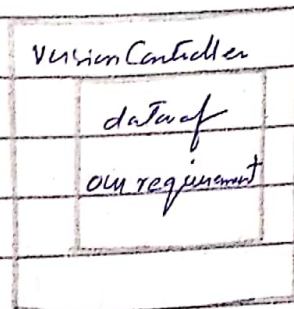 Version Controller
data of
our requirement